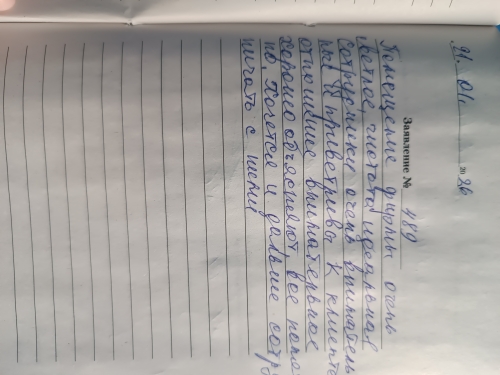 21. 01. 20 26
Заявление № 489
Помещение фирмы очень
светлое, чистота идеальная
Сотрудники очень вниматель
ны и приветливы к клиенте
отношение внимательное
хорошо объясняют, все поня
но. Хочется и дальше сотру
ничать с ними